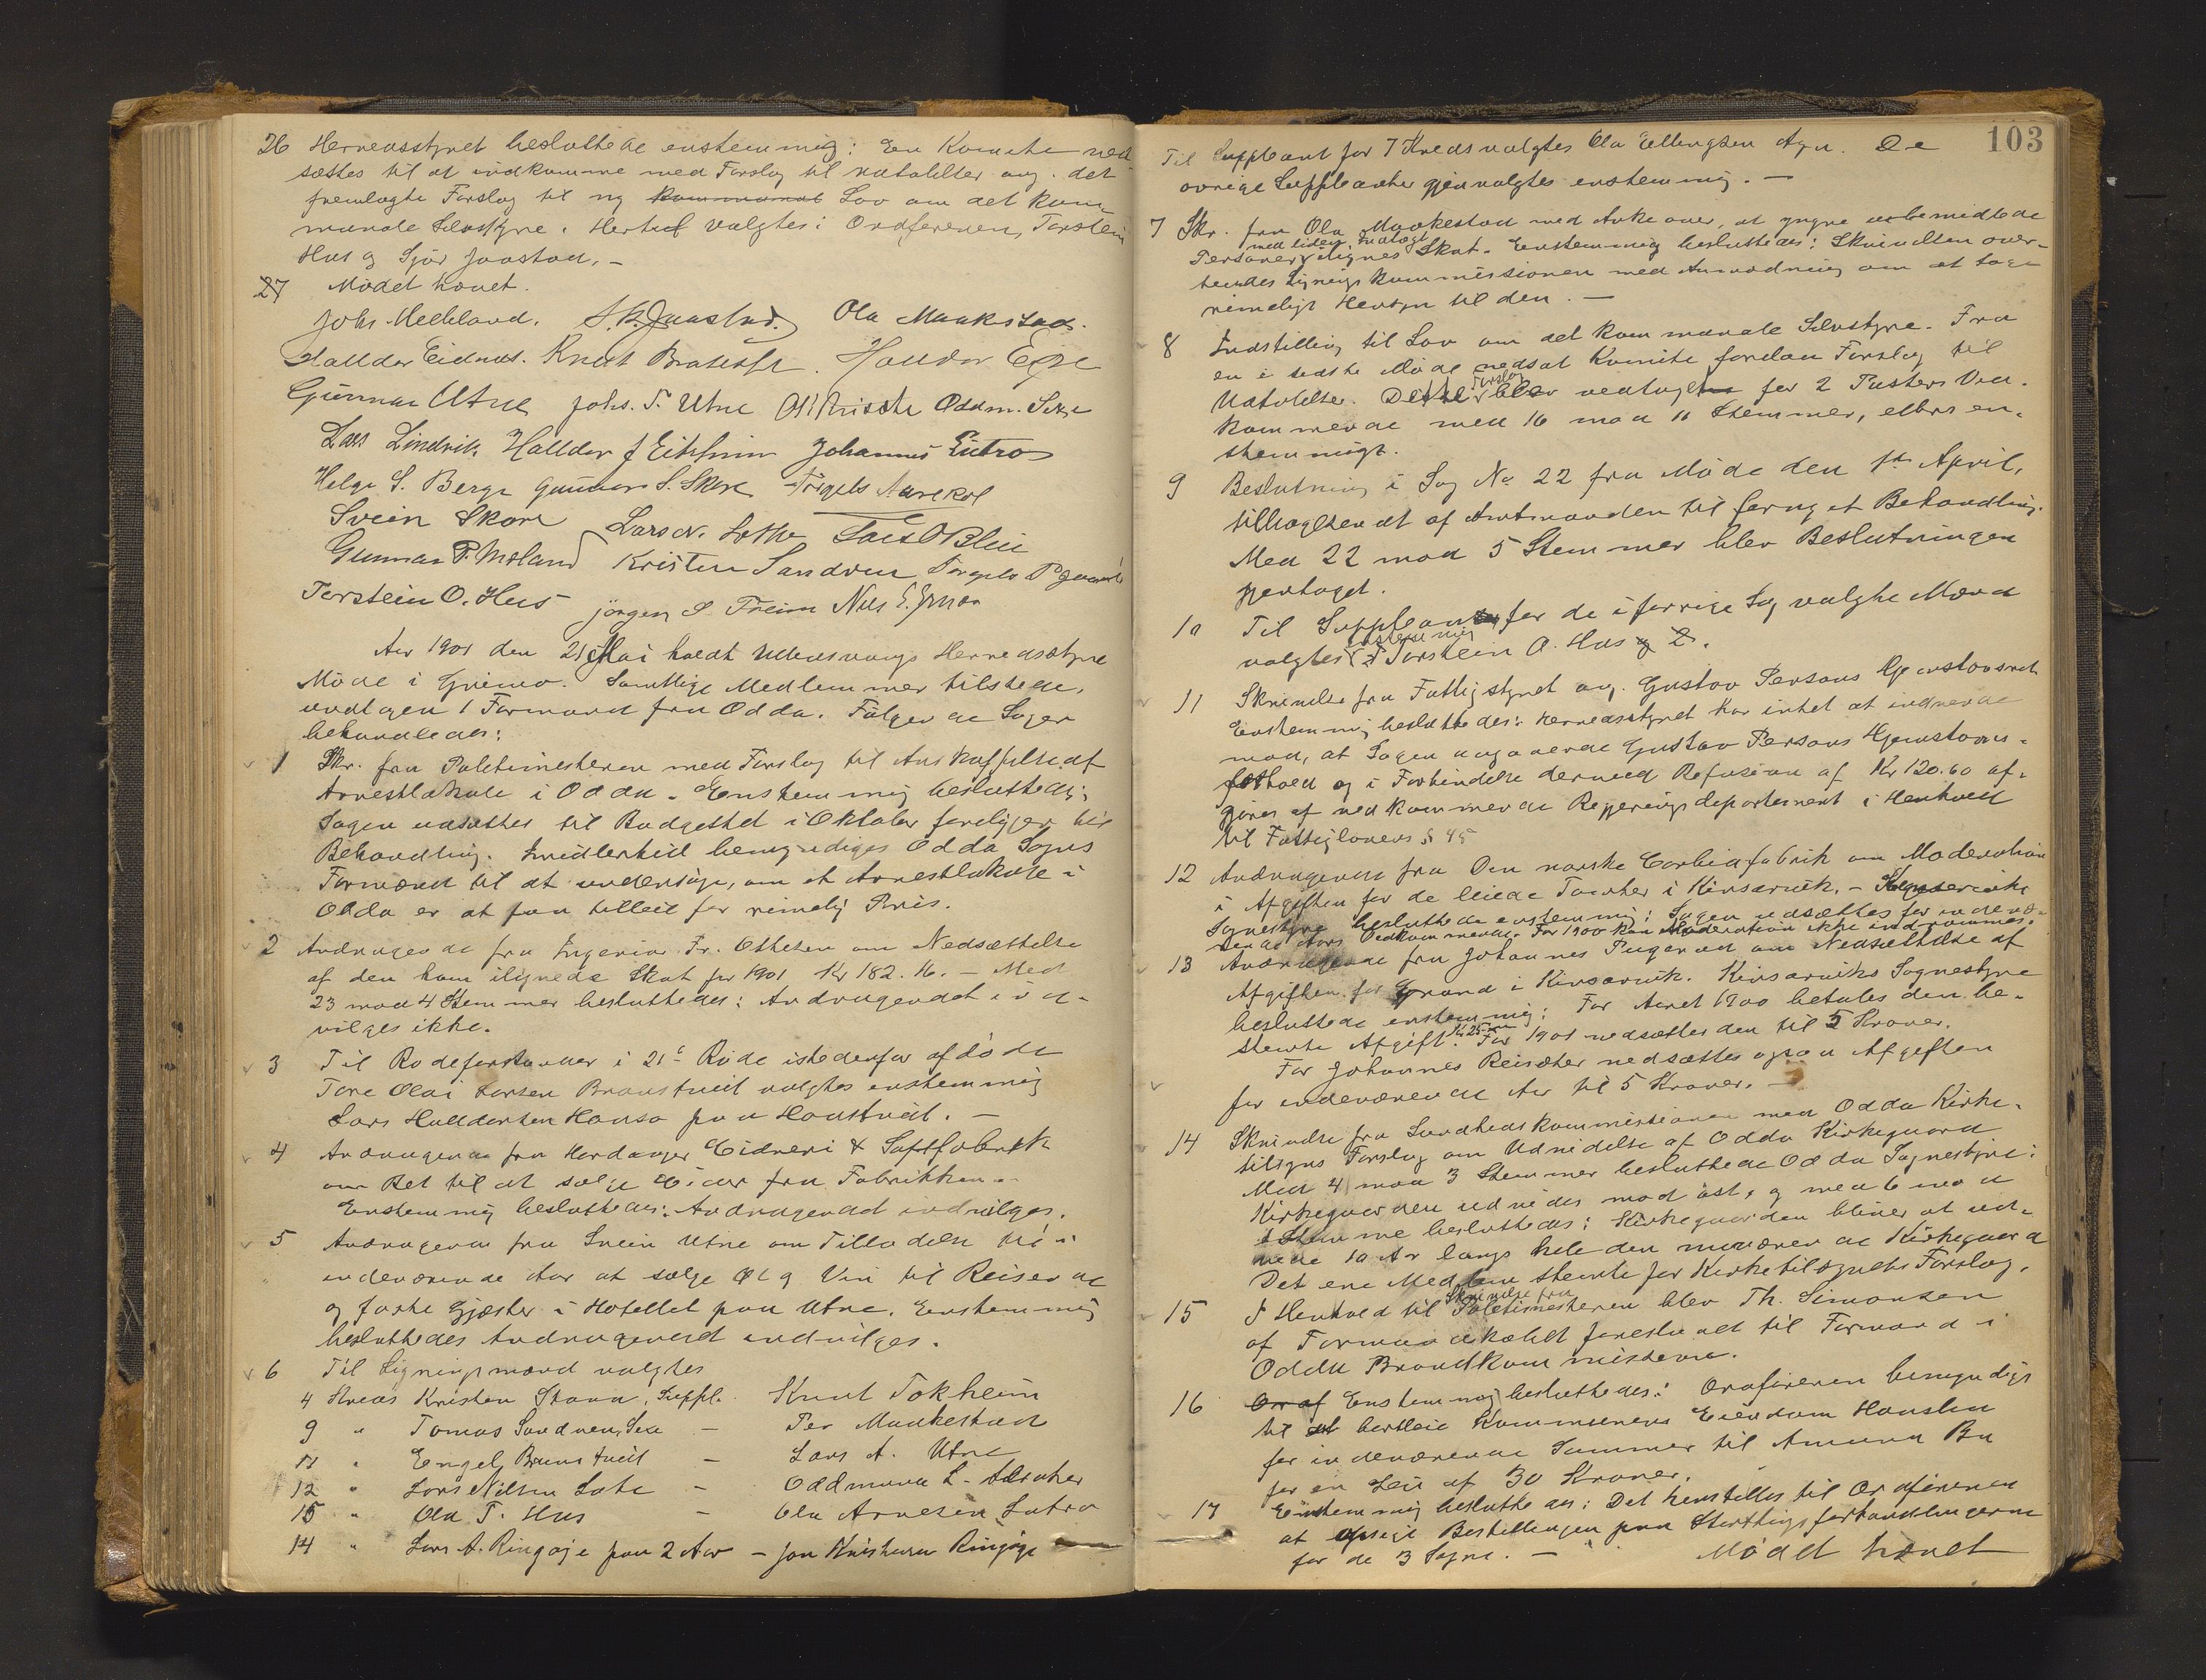 26 Herredsstyret besluttede enstemmig: En Komite ned-
sættes til at indkomme med Forslag til Udtalelser ang. det
fremlagte Forslag til ny kommunal Lov om det kom-
munale Selvstyre. Hertil valgtes: Ordføreren, Torstein
Hus og Sjur Jaastad. –
27 Mødet hævet.
Johs Meeland. S. K. Jaastad. Ola Maakestad.
Halldor Eidnes. Knut Bratebø. Halldor
Gunnar Utne Johs. T. Utne Oddm.
Lars Lindvik Halldor J Eitrheim Johannes Lutro
Helge S. Berge Gunnar S. Skare Torgils Aarekol
Svein Skare Lars N. Lothe Lars O Blie
Gunnar P. Mæland Kristen Sandven Torgils P
Torstein O. Hus Jørgen S. Freim Nils
Aar 1901 den 21 Mai holdt Ullensvangs Herredsstyre
Møde i Grimo. Samtlige Medlemmer tilstede,
undtagen 1 Formand fra Odda. Følgende Sager
behandledes:
1 Skr. fra Politimesteren med Forslag til Anskaffelse af
Arrestlokale i Odda. Enstemmig besluttedes:
Sagen udsættes til Budgettet i Oktober foreligger til
Behandling. Imidlertid bemyndiges Odda Sogns
Formænd til at undersøge, om et Arrestlokale i
Odda er at faa tilleie for rimelig Pris.
2 Andragende fra Ingeniør Fr. Ottesen om Nedsættelse
af den ham ilignede Skat for 1901 Kr 182.16. – Med
23 mod 4 Stemmer besluttedes: Andragendet ind-
vilges ikke.
3 Til Rodeforstander i 21e Rode istedenfor afdøde
Tore Olai Larsen Braustveit valgtes enstemmig
Lars Halldorsen Hauso paa Haustveit. –
4 Andragende fra Hardanger Cideri & Saftfabrikk
om Ret til at sælge Cider fra Fabrikken.
Enstemmig besluttedes: Andragendet indvilges.
5 Andragende fra Svein Utne om Tilladelse til i
indeværende Aar at sælge Øl og Vin til Reisende
og faste Gjæster i Hotellet paa Utne. Enstemmig
besluttedes Andragendet indvilges.
6 Til Ligningsmænd valgtes
4 Kreds Kristen Stana, Suppl. Knut Tokheim
9 " Tomas Sandven, Sexe – Per Maakestad
11 " Engel Braustveit – Lars A. Utne
12 " Lars Nilsen Lote – Oddmund L. Alsaker
15 " Ola T. Hus – Ola Arnesen Lutro
14 " Lars A. Ringøje paa 2 Aar – Jon Kristensen Ringøje
103
Til Suppleant for 7 Kreds valgtes Ola Ellingsen Aga. De
øvrige Suppleanter gjenvalgtes enstemmig. –
7 Skr. fra Ola Maakestad med Anke over, at yngre ubemidlede
med liden Indtægt
Personer ilignes Skat. Enstemmig besluttedes: Skrivelsen over-
sendes Ligningskommissionen med Anmodning om at tage
rimeligt Hensyn til den. –
8 Indstilling til Lov om det kommunale Selvstyre. Fra
en i sidste Møde nedsat Komite forelaa Forslag til
Udtalelse. Dette Forslag blev vedtaget for 2 Posters Ved-
kommende med 16 mod 11 Stemmer, ellers en-
stemmigt.
9 Beslutning i Sag No 22 fra Møde den 1ste April,
tilbagesendt af Amtmanden til fornyet Behandling.
Med 22 mod 5 Stemmer blev Beslutningen
gjentaget.
10 Til Suppleant for de i forrige Sag valgte Mænd
enstemmig
valgtes Torstein O. Hus og 2.
11 Skrivelse fra Fattigstyret ang. Gustav Persons Hjemstavnsret
Enstemmig besluttedes: Herredsstyret har intet at indvende
mod, at Sagen angaaende Gustav Persons Hjemstavns-
forhold og i Forbindelse dermed Refusion af Kr 120.60 af-
gjøres af vedkommende Regjeringsdepartement i Henhold
til Fattiglovens § 45
12 Andragende fra Den norske Carbidfabrik om Moderation
i Afgiften for de leiede Tomter i Kinsarvik. – Kinserviks
Sognestyre besluttede enstemmig: Sagen udsættes for indevæ-
rende Aars Vedkommende. For 1900 kan Moderation ikke indrømmes.
13 Andragende fra Johannes Pugerud om Nedsættelse af
Afgiften for Grund i Kinsarvik. Kinsarviks Sognestyre
besluttede enstemmig: For Aaret 1900 betales den be-
stemte Afgift Kr 25.00 For 1901 nedsættes den til 5 Kroner.
For Johannes Reisæter nedsættes ogsaa Afgiften
for indeværende Aar til 5 Kroner. –
14 Skrivelse fra Sundhedskommissionen med Odda Kirke-
tilsyns Forslag om Udvidelse af Odda Kirkegaard
Med 4 mod 3 Stemmer besluttede Odda Sognestyre:
Kirkegaarden udvides mod øst, og med 6 mod
1 Stemme besluttedes: Kirkegaarden bliver at ud-
vide 10 Ar langs hele den nuværende Kirkegaard
Det ene Medlem stemte for Kirketilsynets Forslag.
15 I Henhold til Skrivelse fra Politimesteren blev Th. Simonsen
af Formandskabet foreslaaet til Formand i
Odda Brandkommission.
16 Or af Enstemmig besluttedes: Ordføreren bemyndiges
til at bortleie Kommunens Eiendom Hauslen
for indeværende Sommer til Amund Bu
for en Leie af 30 Kroner.
17 Enstemmig besluttedes: Det henstilles til Ordføreren
at opsige Bestillingen paa Storthingsforhandlingerne
for de 3 Sogne. – Mødet hævet